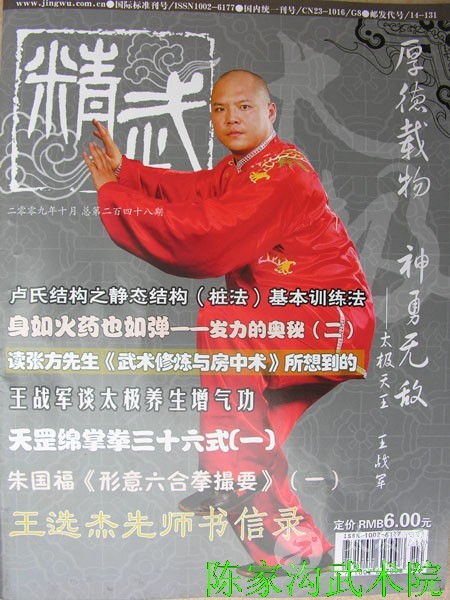 www.jingwu.com.cn●国际标准刊号/ISSN1002-6177●国内统一刊号/CN23-1016/G8●邮发代号/14-131
精武
太极
厚德载物 神勇无敌
——太极天王 王战军
二零零九年十月 总第二百四十八期
卢氏结构之静态结构（桩法）基本训练法
身如火药也如弹——发力的奥秘（二）
读张方先生《武术修炼与房中术》所想到的
王战军谈太极养生增气功
天罡绵掌拳三十六式(一)
朱国福《形意六合拳撮要》（一）
王选杰先师书信录
定价 RMB6.00元
ISSN 1002-6177
陈家沟武术院